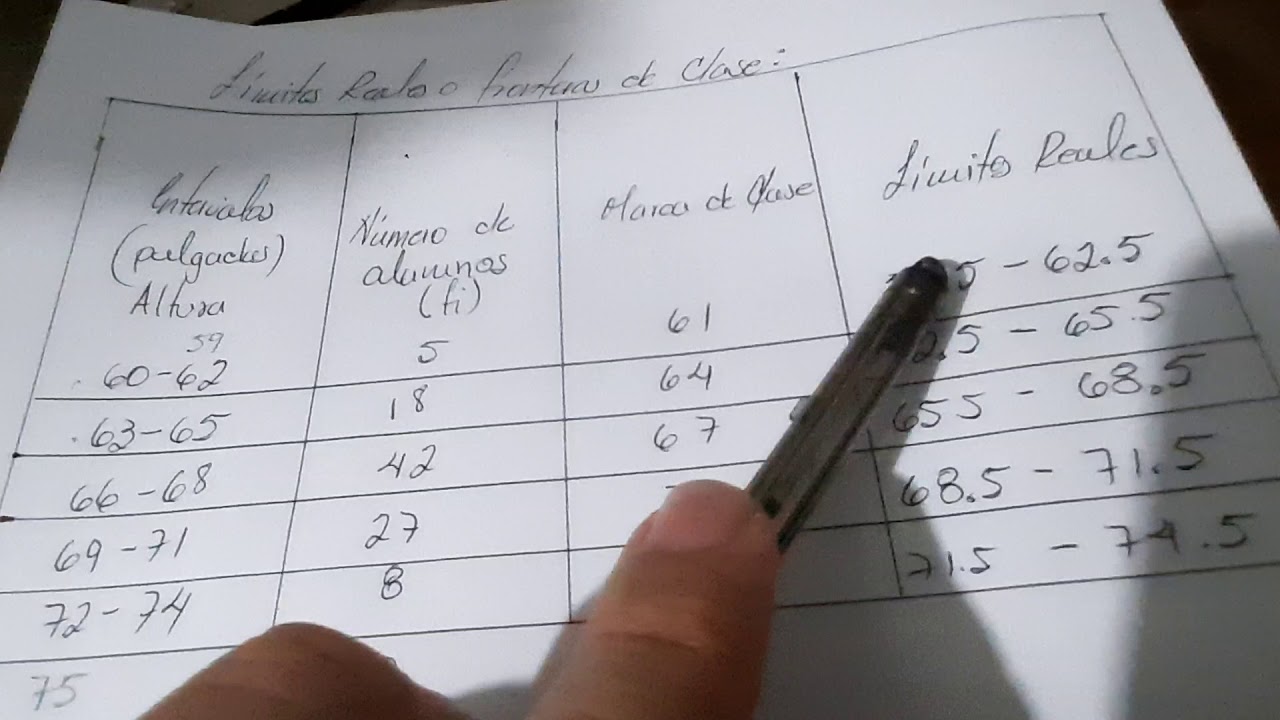 Límites Reales o fronteras de Clase:
Intervalos
(pulgadas)
Altura
Número de
alumnos
(fi)
Marca de Clase
Límites Reales
59
60-62 5 61 5 - 62.5
63-65 18 64 2.5 - 65.5
66-68 42 67 655 - 68.5
69-71 27 68.5 - 71.5
72-74 8 71.5 - 74.5
75